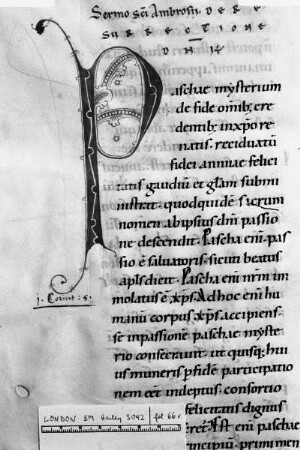 Sermo sci Ambrosii. DE RE
SURRECTIONE
DNI
Paschae mysterium
de fide omib; cre
dentib; inxpo re
natis. reciduatū
fidei annuae felici
tatis gaudiū et glam submi
nistrat. quod quidē sacrum
nomen ab ipsius dni passio
ne descendit. Pascha eni pas
sio ē salvatoris. sicut beatus
apls dicit. Pascha eni nrm im
molatus ē xps. Ad hoc eni hu
manū corpus xps accipiens.
se in passione paschae myste
rio consecravit. ut quisq; hui
us muneris p fidē participatio
nem eēt indeptus. consortio
felicitatis dignus
pascha
principiū. primi men
1. Corint. 5.
LONDON BM Harley 3042 fol 66v